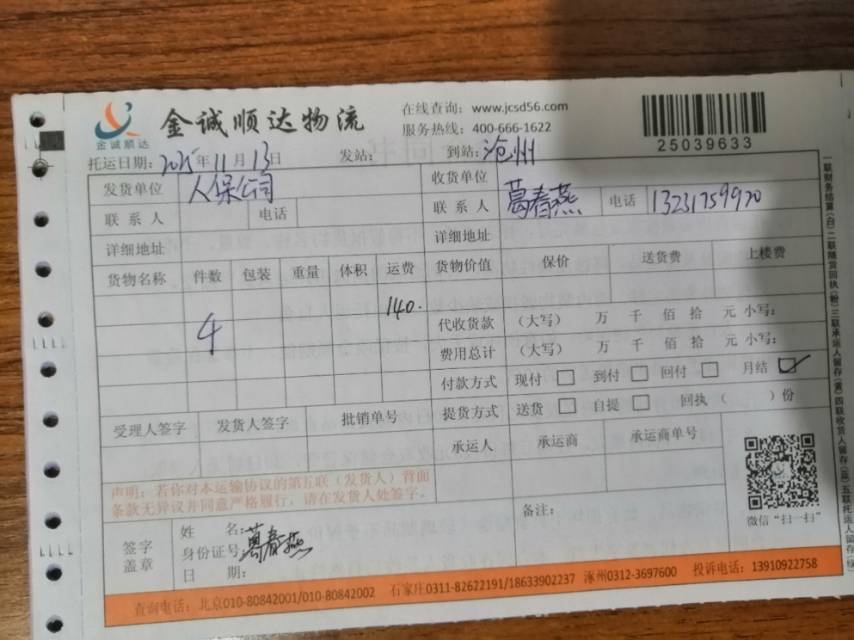 金诚顺达
金诚顺达物流
在线查询：www.jcsd56.com
服务热线：400-666-1622
25039633
托运日期：2025年11月13日 发站： 到站：沧州
发货单位 人保公司 收货单位
联系人 电话 联系人 葛春燕 电话 13231759920
详细地址 详细地址
货物名称 件数 包装 重量 体积 运费 货物价值 保价 送货费 上楼费
4 140.
代收货款 （大写） 万 仟 佰 拾 元 小写：
费用总计 （大写） 万 仟 佰 拾 元 小写：
付款方式 现付 到付 回付 月结 ✓
受理人签字 发货人签字 批销单号 提货方式 送货 自提 回执（ ）份
承运人 承运商 承运商单号
声明：若你对本运输协议的第五联（发货人）背面
条款无异议并同意严格履行，请在发货人处签字。
微信"扫一扫"
签字
盖章
姓 名：
身份证号：葛春燕
日 期：
备注：
查询电话：北京010-80842001/010-80842002 石家庄0311-82622191/18633902237 涿州0312-3697600 投诉电话：13910922758
一联财务结算(白)二联随货回执(粉)三联承运人留存(黄)四联收货人留存(蓝)五联托运人留存(绿